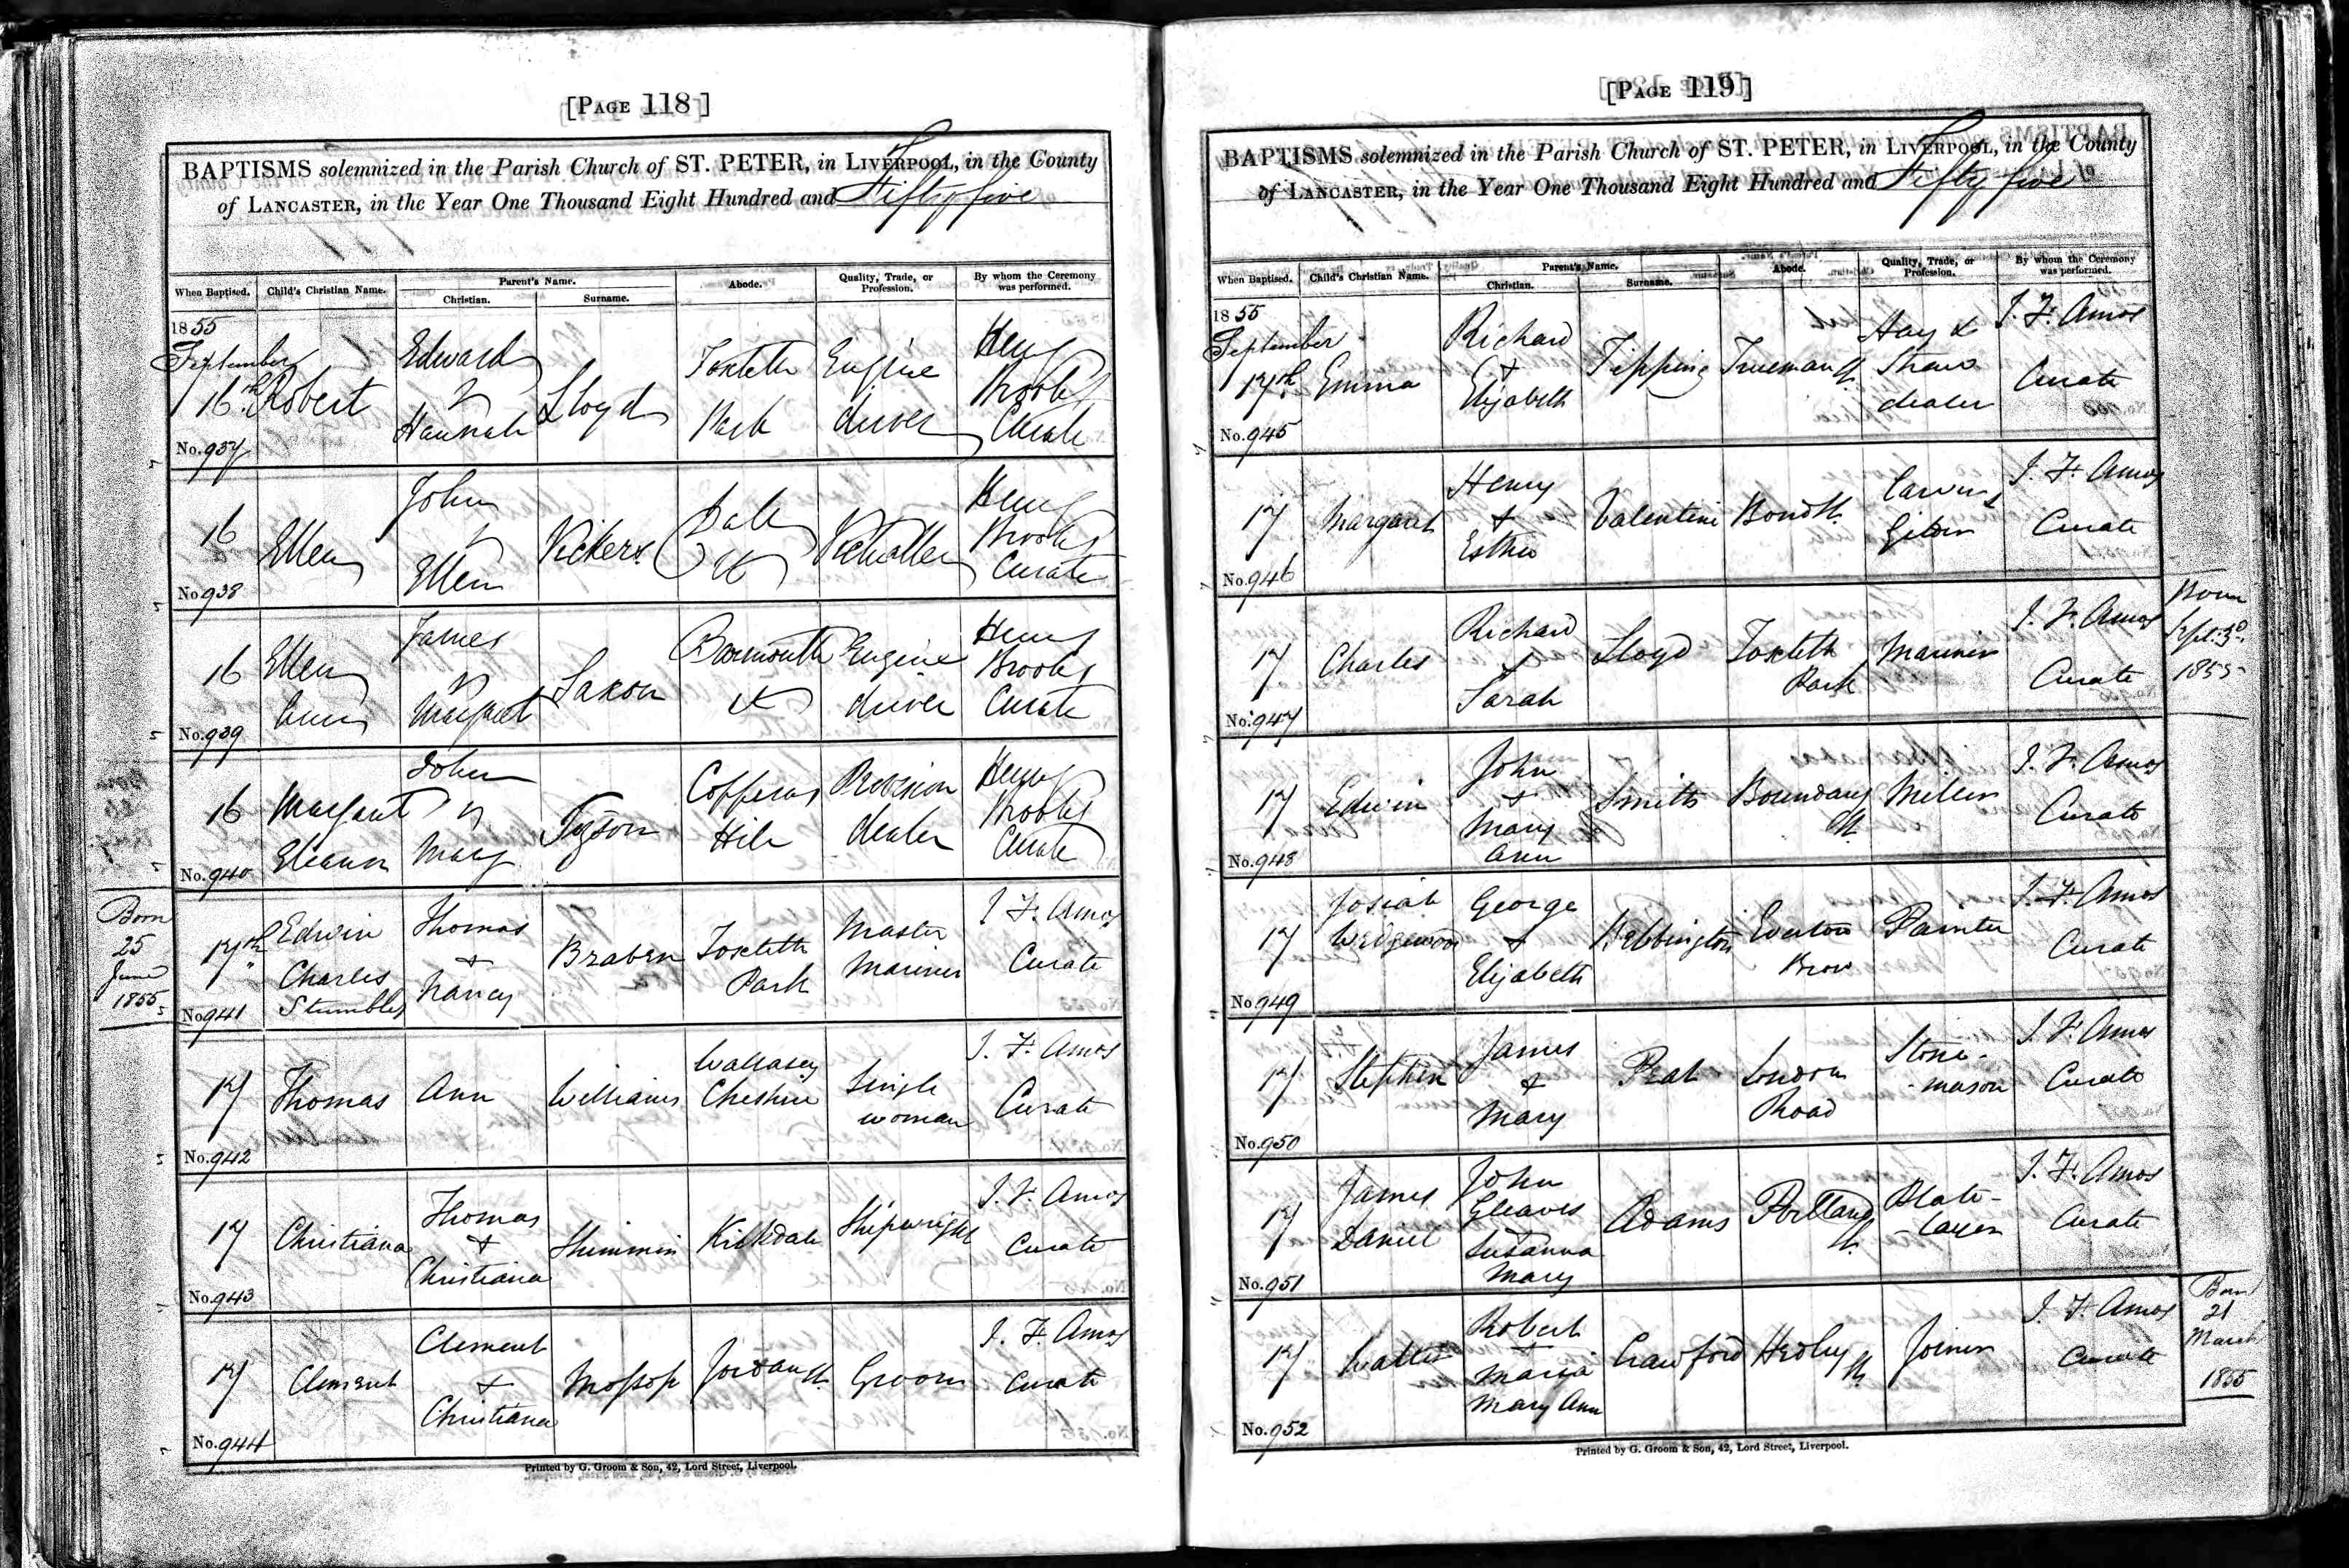 [PAGE 118]
BAPTISMS solemnized in the Parish Church of ST. PETER, in LIVERPOOL, in the County
of LANCASTER, in the Year One Thousand Eight Hundred and Fifty five
When Baptised.
Child's Christian Name.
Parent's Name.
Christian.
Surname.
Abode.
Quality, Trade, or
Profession.
By whom the Ceremony
was performed.
1855
September
16th
No. 937
Robert
Edward
&
Hannah
Lloyd
Toxteth
Park
Engine
driver
Henry
Brooks
Curate
16
No. 938
Ellen
John
&
Ellen
Vickers
Dale
St
Victualler
Henry
Brooks
Curate
16
No. 939
Ellen
Ann
James
&
Margaret
Saxon
Barmouth
St
Engine
driver
Henry
Brooks
Curate
16
No. 940
Margaret
Eleanor
John
&
Mary
Tyson
Copperas
Hill
Provision
dealer
Henry
Brooks
Curate
Born
25
June
1855
17th
No. 941
Edwin
Charles
Stumbles
Thomas
&
Nancy
Braben
Toxteth
Park
Master
Mariner
J. F. Amos
Curate
17
No. 942
Thomas
Ann
Williams
Wallasey
Cheshire
Single
woman
J. F. Amos
Curate
17
No. 943
Christiana
Thomas
&
Christiana
Shimmin
Kirkdale
Shipwright
J. F. Amos
Curate
17
No. 944
Clement
Clement
&
Christiana
Mossop
Jordan St.
Groom
J. F. Amos
Curate
Printed by G. Groom & Son, 42, Lord Street, Liverpool.
[PAGE 119]
BAPTISMS solemnized in the Parish Church of ST. PETER, in LIVERPOOL, in the County
of LANCASTER, in the Year One Thousand Eight Hundred and Fifty five
When Baptised.
Child's Christian Name.
Parent's Name.
Christian.
Surname.
Abode.
Quality, Trade, or
Profession.
By whom the Ceremony
was performed.
1855
September
17th
No. 945
Emma
Richard
&
Elizabeth
Tipping
Trueman St.
Hay &
Straw
dealer
J. F. Amos
Curate
17
No. 946
Margaret
Henry
&
Esther
Valentine
Bond St.
Carver &
Gilder
J. F. Amos
Curate
17
No. 947
Charles
Richard
&
Sarah
Lloyd
Toxteth
Park
Mariner
J. F. Amos
Curate
Born
Sept. 3d
1855
17
No. 948
Edwin
John
&
Mary
Ann
Smith
Boundary
St.
Miller
J. F. Amos
Curate
17
No. 949
Josiah
Wedgewood
George
&
Elizabeth
Bebbington
Everton
Brow
Painter
J. F. Amos
Curate
17
No. 950
Stephen
James
&
Mary
Peat
London
Road
Stone-
mason
J. F. Amos
Curate
17
No. 951
James
Daniel
John
Gleaves
Susanna
Mary
Adams
Portland
St.
Plate-
layer
J. F. Amos
Curate
17
No. 952
Walter
Robert
&
Maria
Mary Ann
Crawford
Hedley
St.
Joiner
J. F. Amos
Curate
Born
21
March
1855
Printed by G. Groom & Son, 42, Lord Street, Liverpool.